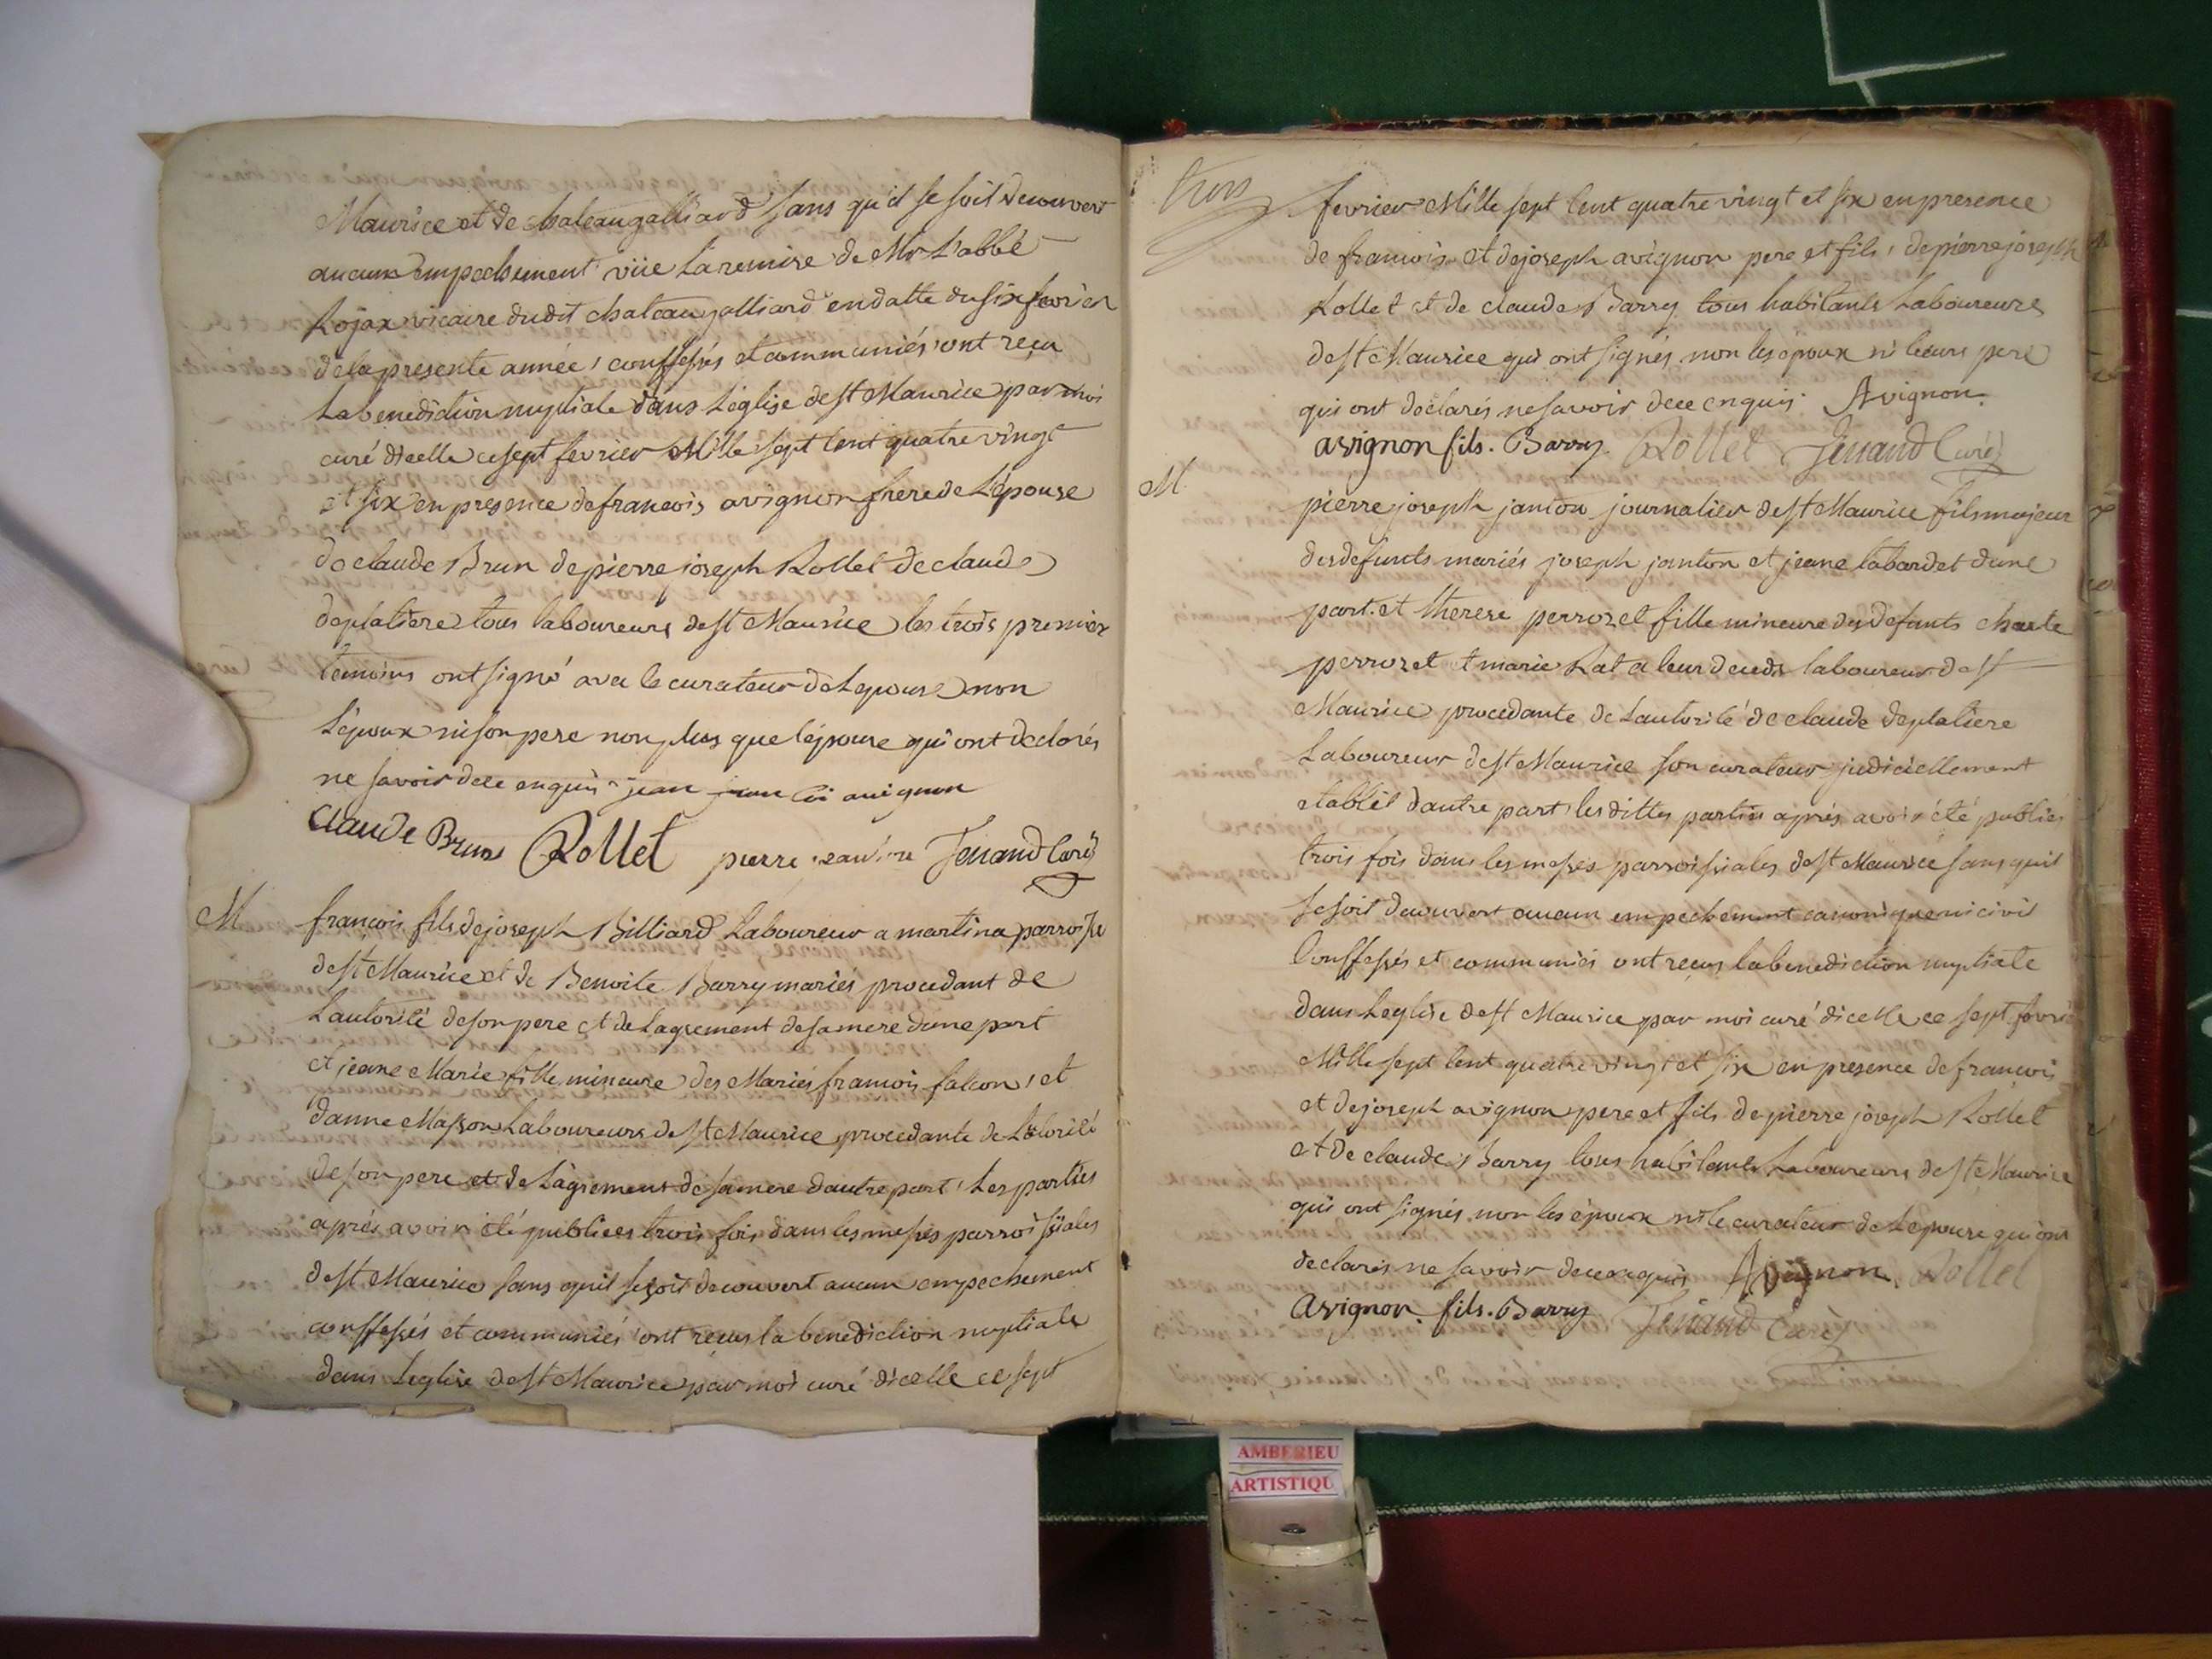 Maurice et de chateaugalliard sans qu'il se soit decouvert
aucun empechement vüe la remise de Mr L'abbé
Rojax vicaire dudit chateaugalliard en datte du six fevrier
de la presente année, conffessés et communiés ont reçu
La benediction nuptiale dans L'église de st Maurice par moi
curé dicelle ce sept fevrier Mille sept cent quatre vingt
et six en presence de francois avignon frere de L'épouse
de claude Brun de pierre joseph Rollet de claude
deplatiere tous laboureurs de st Maurice les trois premier
temoins ont signé avec le curateur de Lepouse non
L'époux ni son pere non plus que l'épouse qui ont declarés
ne savoir dece enquis jean avignon
Claude Brun Rollet pierre Jenand Curé
M
francois fils de joseph Billiard Laboureur a martina parroisse
de st Maurice et de Benoite Barry mariés procedant de
Lautorité de son pere et de Lagrement de sa mere dune part
et jeane Marie fille mineure des Mariés francois falcon, et
danne Masson Laboureurs de st Maurice procedante de Lotorité
de son pere et de Lagrement de sa mere dautre part, Les parties
aprés avoir été publiees trois fois dans les messes parroissiales
de st Maurice sans quil se soit decouvert aucun empechement
conffessés et communiés ont recus la benediction nuptiale
dans Leglise de st Maurice par moi curé dicelle ce sept
trois
fevrier Mille sept cent quatre vingt et six en presence
de francois et de joseph avignon pere et fils, de pierre joseph
Rollet et de claude Barry tous habitants Laboureurs
de st Maurice qui ont signés non les epoux ni leurs pere
qui ont déclarés ne savoir dece enquis. Avignon.
avignon fils. Barry Rollet Jenand Curé
M
pierre joseph janton journalier de st Maurice fils majeur
des defunts mariés joseph janton et jeane labardet dune
part. et therese perrozet fille mineure des defunts charle
perrozet et marie Rat a leur deceds laboureur de st
Maurice procedante de Lautorité de claude deplatiere
Laboureur de st Maurice son curateur judiciellement
etablit dautre part, les dittes parties aprés avoir été publiés
trois fois dans les messes parroissiales de st Maurice sans quil
se soit decouvert aucun empechement canonique ni civil
Conffessés et communiés ont reçus la benediction nuptiale
dans Leglise de st Maurice par moi curé dicelle ce sept fevrier
Mille sept cent quatre vingt et six en presence de francois
et de joseph avignon pere et fils de pierre joseph Rollet
et de claude Barry tous habitants Laboureurs de st Maurice
qui ont signés non les époux ni le curateur de Lepouse qui ont
declarés ne savoir dece enquis Avignon. Rollet
avignon. fils. Barry Jenand Curé
AMBERIEU
ARTISTIQU